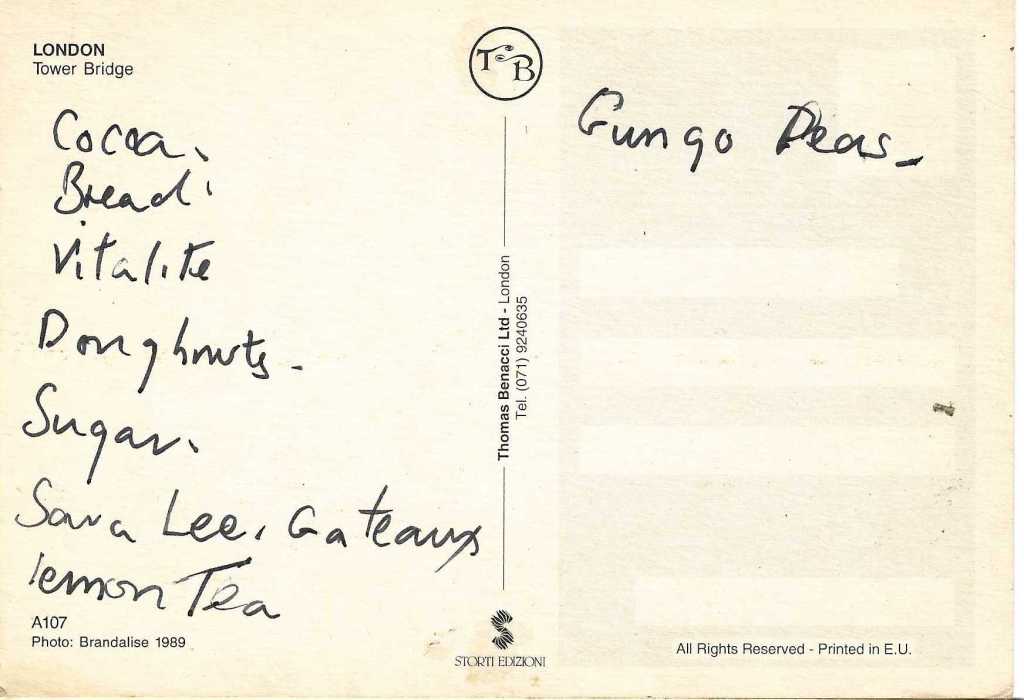 LONDON
Tower Bridge
Cocoa.
Bread.
Vitalite
Doughnuts.
Sugar.
Sara Lee. Gateaux
lemon Tea
A107
Photo: Brandalise 1989
TB
Thomas Benacci Ltd - London
Tel. (071) 9240635
STORTI EDIZIONI
Gungo Peas -
All Rights Reserved - Printed in E.U.